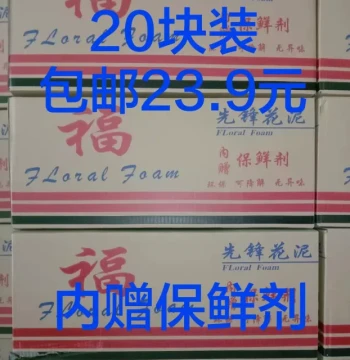 20块装
包邮23.9元
FLoral Foam
福
先锋花泥
FLoral Foam
内赠
保鲜剂
可降解 无异味
FLoral Foam
福
先锋花泥
FLoral Foam
内赠保鲜剂
可降解 无异味
FLoral Foam